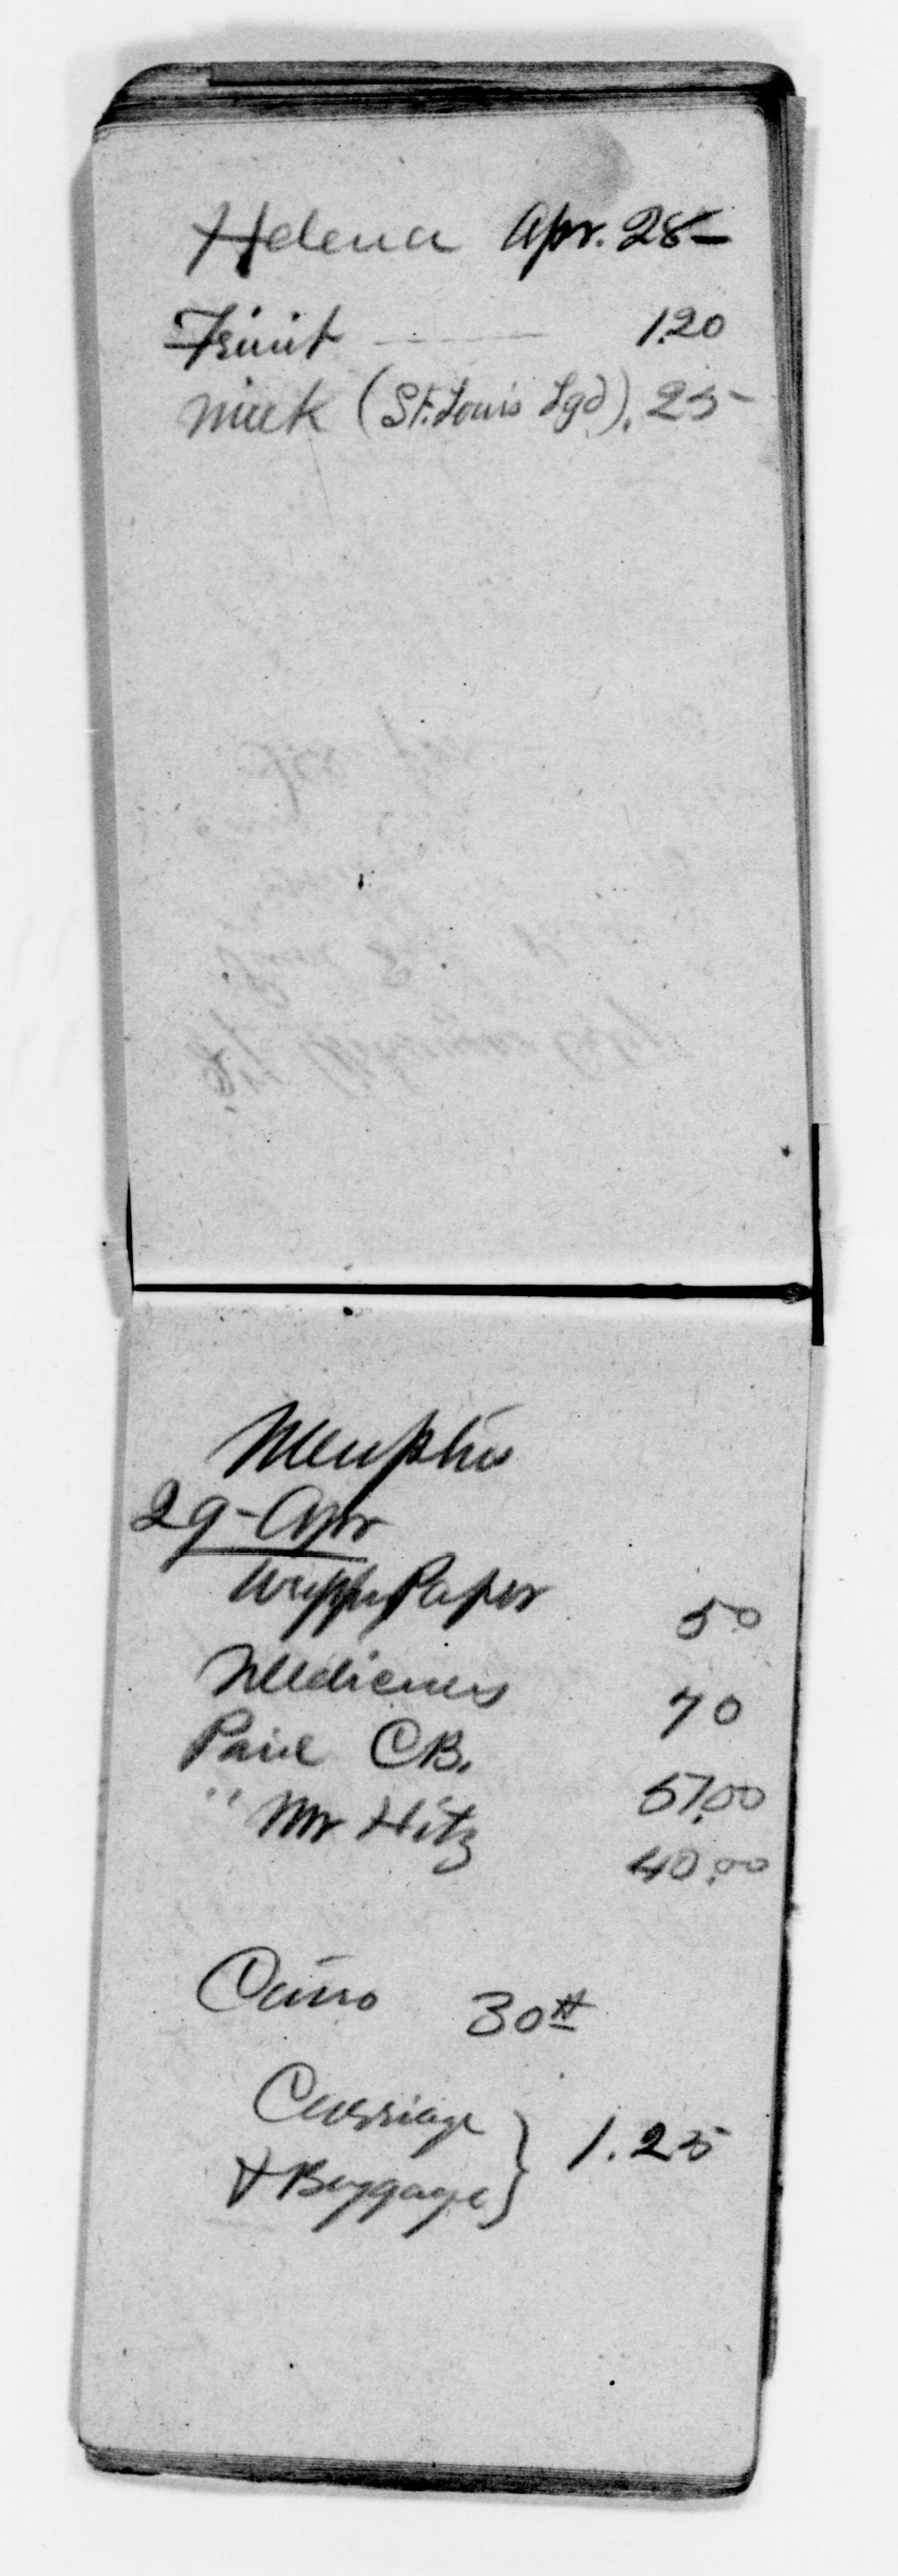 Helena Apr. 28-
Fruit 1.20
Milk (St. Louis Lgd) .25-
Memphis
29-Apr
Paper 50
Medicines 70
Paid C B. 57.00
" Mr Hitz 40.00
Cairo 30th
Carriage
& Baggage } 1.25